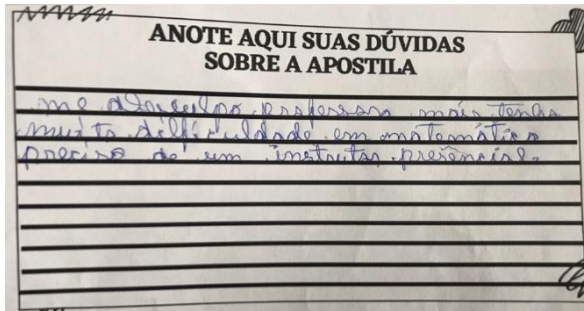 ANOTE AQUI SUAS DÚVIDAS
SOBRE A APOSTILA
me desculpa professora mais tenho
muita dificuldade em matemática
preciso de um instrutor presencial.